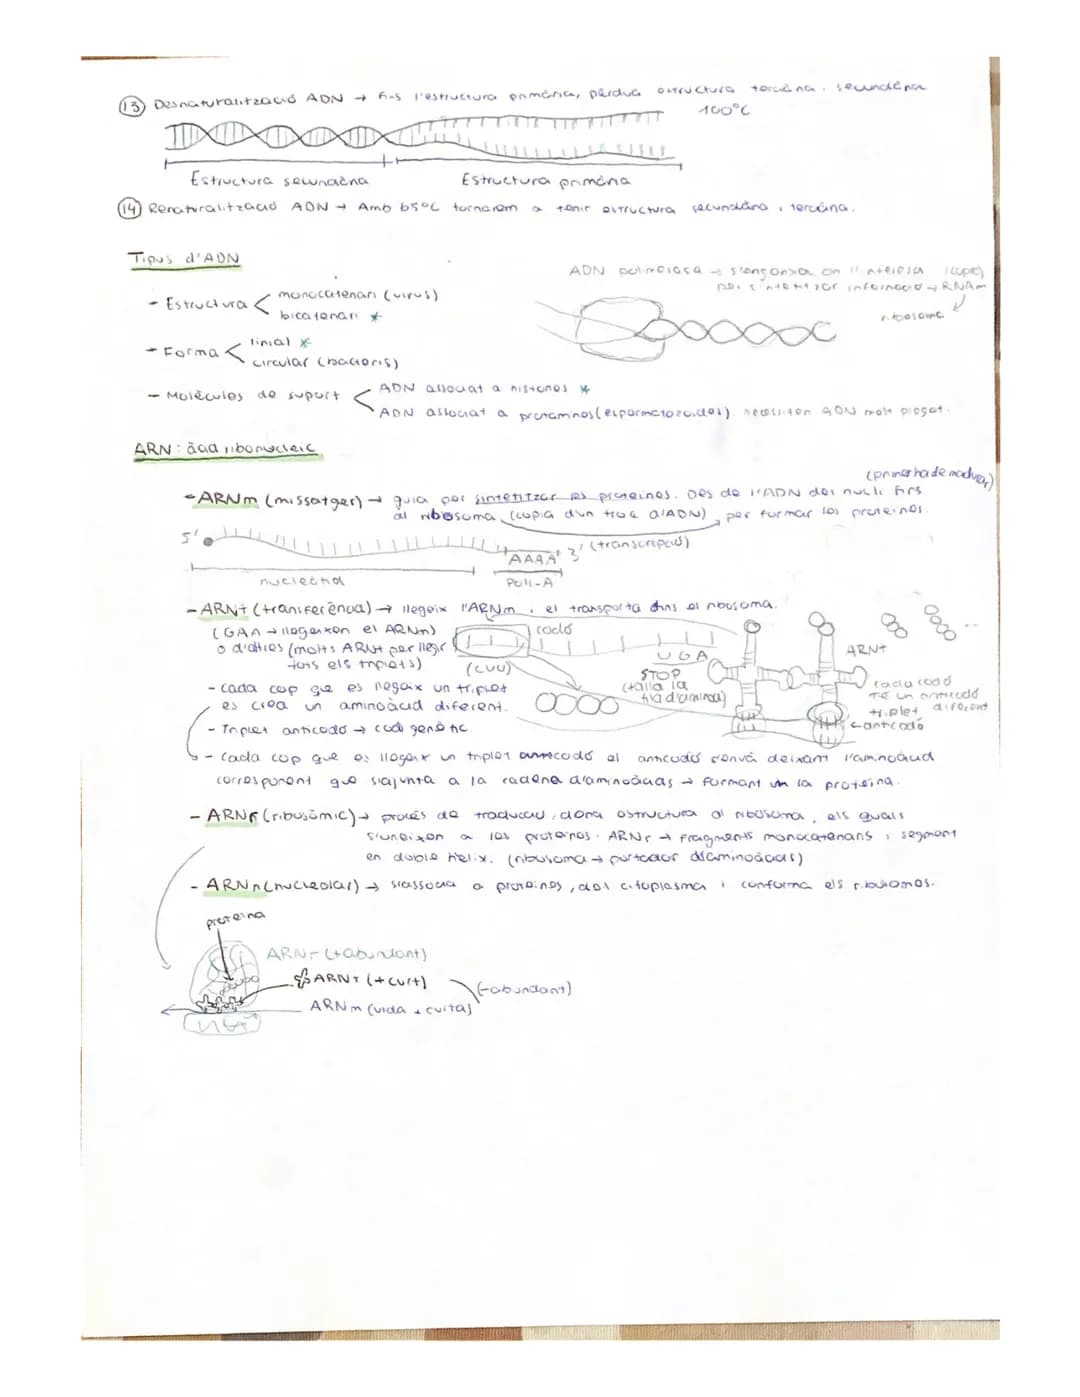 13 Desnaturalització ADN → fins l'estructura primària, pèrdua estructura terciària i secundària
100°C
Estructura secundària
Estructura primària
14 Renaturalització ADN → Amb 65°C tornarem a tenir estructura secundària i terciària.
Tipus d'ADN
- Estructura < monocatenari (virus)
bicatenari *
- Forma < linial *
circular (bacteris)
- Molècules de suport < ADN associat a histones *
ADN associat a protamines (espermatozoides). necessiten ADN molt plegat.
ADN polmerasa → s'enganxa en l'hèlix (copia)
per sintetitzar informació → RNAm
ribosome
ARN: àcid ribonucleic
(primer ha de madurar)
- ARNm (missatger) → guia per sintetitzar les proteïnes. Des de l'ADN del nucli fins
al ribosoma (copia d'un troç d'ADN), per formar les proteïnes.
(transcripció)
5'
AAAA 3'
nucleòtid
Poli-A
- ARNt (transferència) → llegeix l'ARNm i el transporta fins el ribosoma.
(GAA → llegeixen el ARNm)
o d'altres (molts ARNt per llegir
tots els triplets)
codó
(CUU)
UGA
STOP
(talla la
tira d'aminoà)
ARNt
cada codó
té un anticodó
triplet diferent
anticodó
- Cada cop que es llegeix un triplet
es crea un aminoàcid diferent.
- Triplet anticodó → codi genètic.
- Cada cop que es llegeix un triplet anticodó el anticodó s'envà deixant l'aminoàcid
corresponent que s'ajunta a la cadena d'aminoàcids → formant la proteïna.
- ARNr (ribosòmic) → procés de traducció, dona estructura al ribosoma, els quals
s'uneixen a les proteïnes. ARNr → fragments monocatenaris i segment
en doble hèlix. (ribosoma → portador d'aminoàcids)
- ARNn (nucleolar) → s'associa a proteïnes, del citoplasma i conforma els ribosomes.
proteïna
ARNr (+abundant)
ARNt (+curt)
(-abundant)
ARNm (vida + curta)